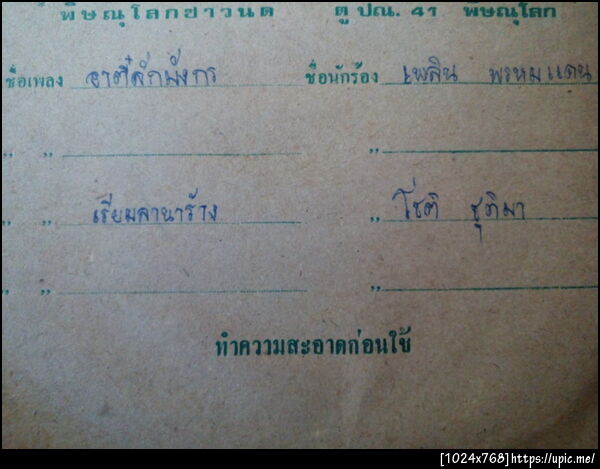 พิษณุโลกซาวนด์ ตู้ ปณ. 41 พิษณุโลก
ชื่อเพลง อาตี๋สักมังกร ชื่อนักร้อง เพลิน พรหมแดน
” ” ”
” ” เรียมลานาร้าง ” โชติ ชุติมา
” ” ”
ทำความสะอาดก่อนใช้
[1024x768]https://upic.me/